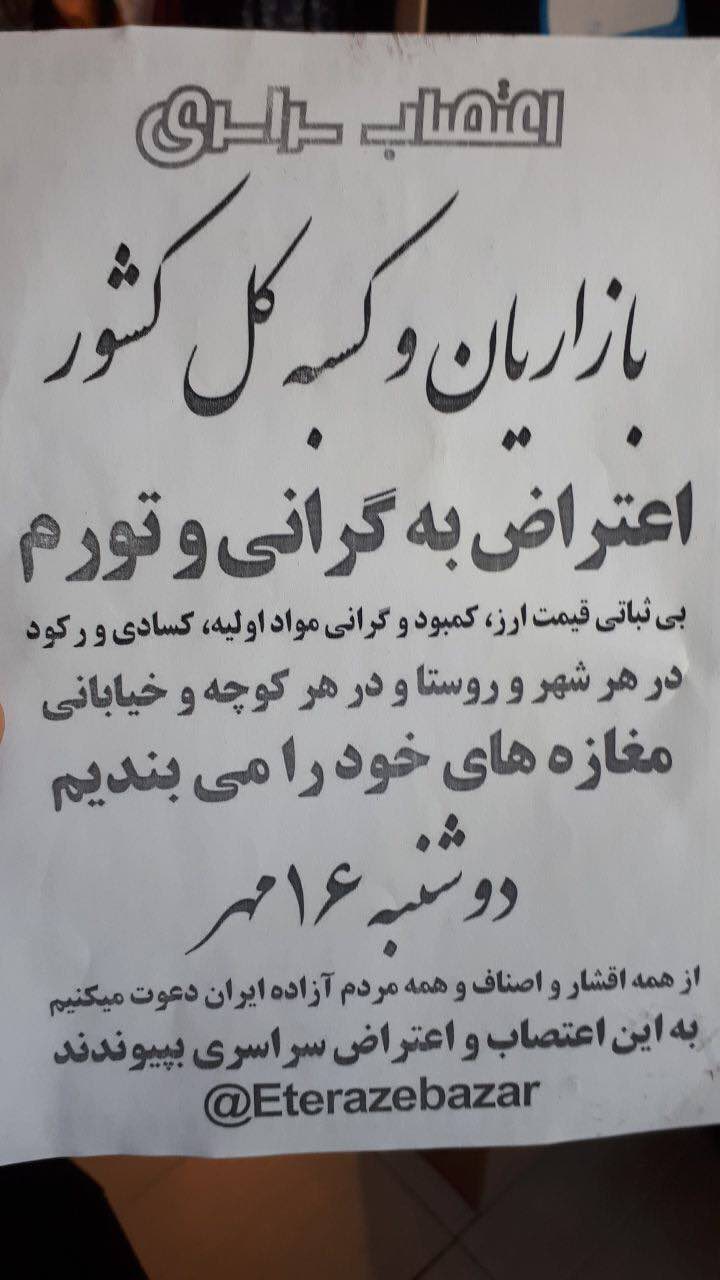 اعتصاب سراسری
بازاریان و کسبه کل کشور
اعتراض به گرانی و تورم
بی ثباتی قیمت ارز، کمبود و گرانی مواد اولیه، کسادی و رکود
در هر شهر و روستا و در هر کوچه و خیابانی
مغازه های خود را می بندیم
دوشنبه ۱۶ مهر
از همه اقشار و اصناف و همه مردم آزاده ایران دعوت میکنیم
به این اعتصاب و اعتراض سراسری بپیوندند
@Eterazebazar